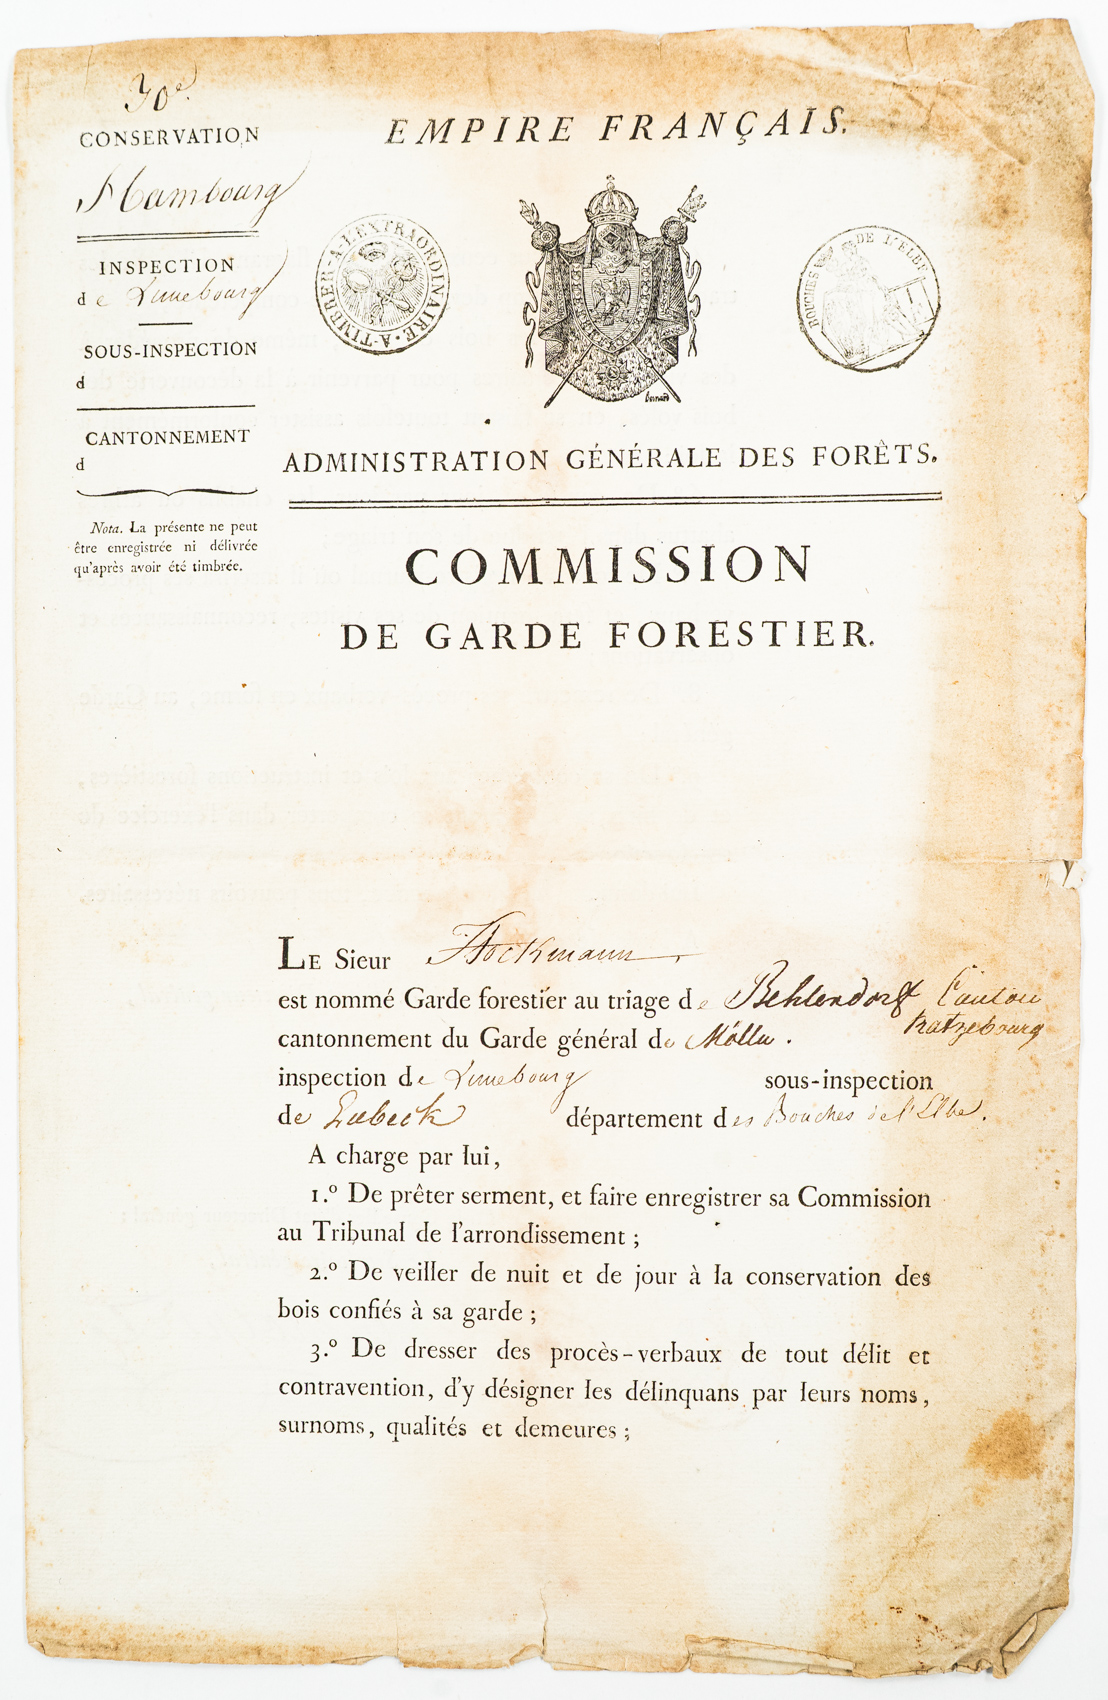 30e.
CONSERVATION
Hambourg
INSPECTION
de Lunebourg
SOUS-INSPECTION
d
CANTONNEMENT
d
Nota. La présente ne peut
être enregistrée ni délivrée
qu'après avoir été timbrée.
EMPIRE FRANÇAIS.
A-TIMBRER-A-L'EXTRAORDINAIRE
BOUCHES DE L'ELBE
ADMINISTRATION GÉNÉRALE DES FORÊTS.
COMMISSION
DE GARDE FORESTIER.
LE Sieur Stockmann
est nommé Garde forestier au triage de Behlendorff Canton
Ratzebourg
cantonnement du Garde général de Mölln.
inspection de Lunebourg sous-inspection
de Lubeck département des Bouches de l'Elbe.
A charge par lui,
1.º De prêter serment, et faire enregistrer sa Commission
au Tribunal de l'arrondissement ;
2.º De veiller de nuit et de jour à la conservation des
bois confiés à sa garde ;
3.º De dresser des procès-verbaux de tout délit et
contravention, d'y désigner les délinquans par leurs noms,
surnoms, qualités et demeures ;